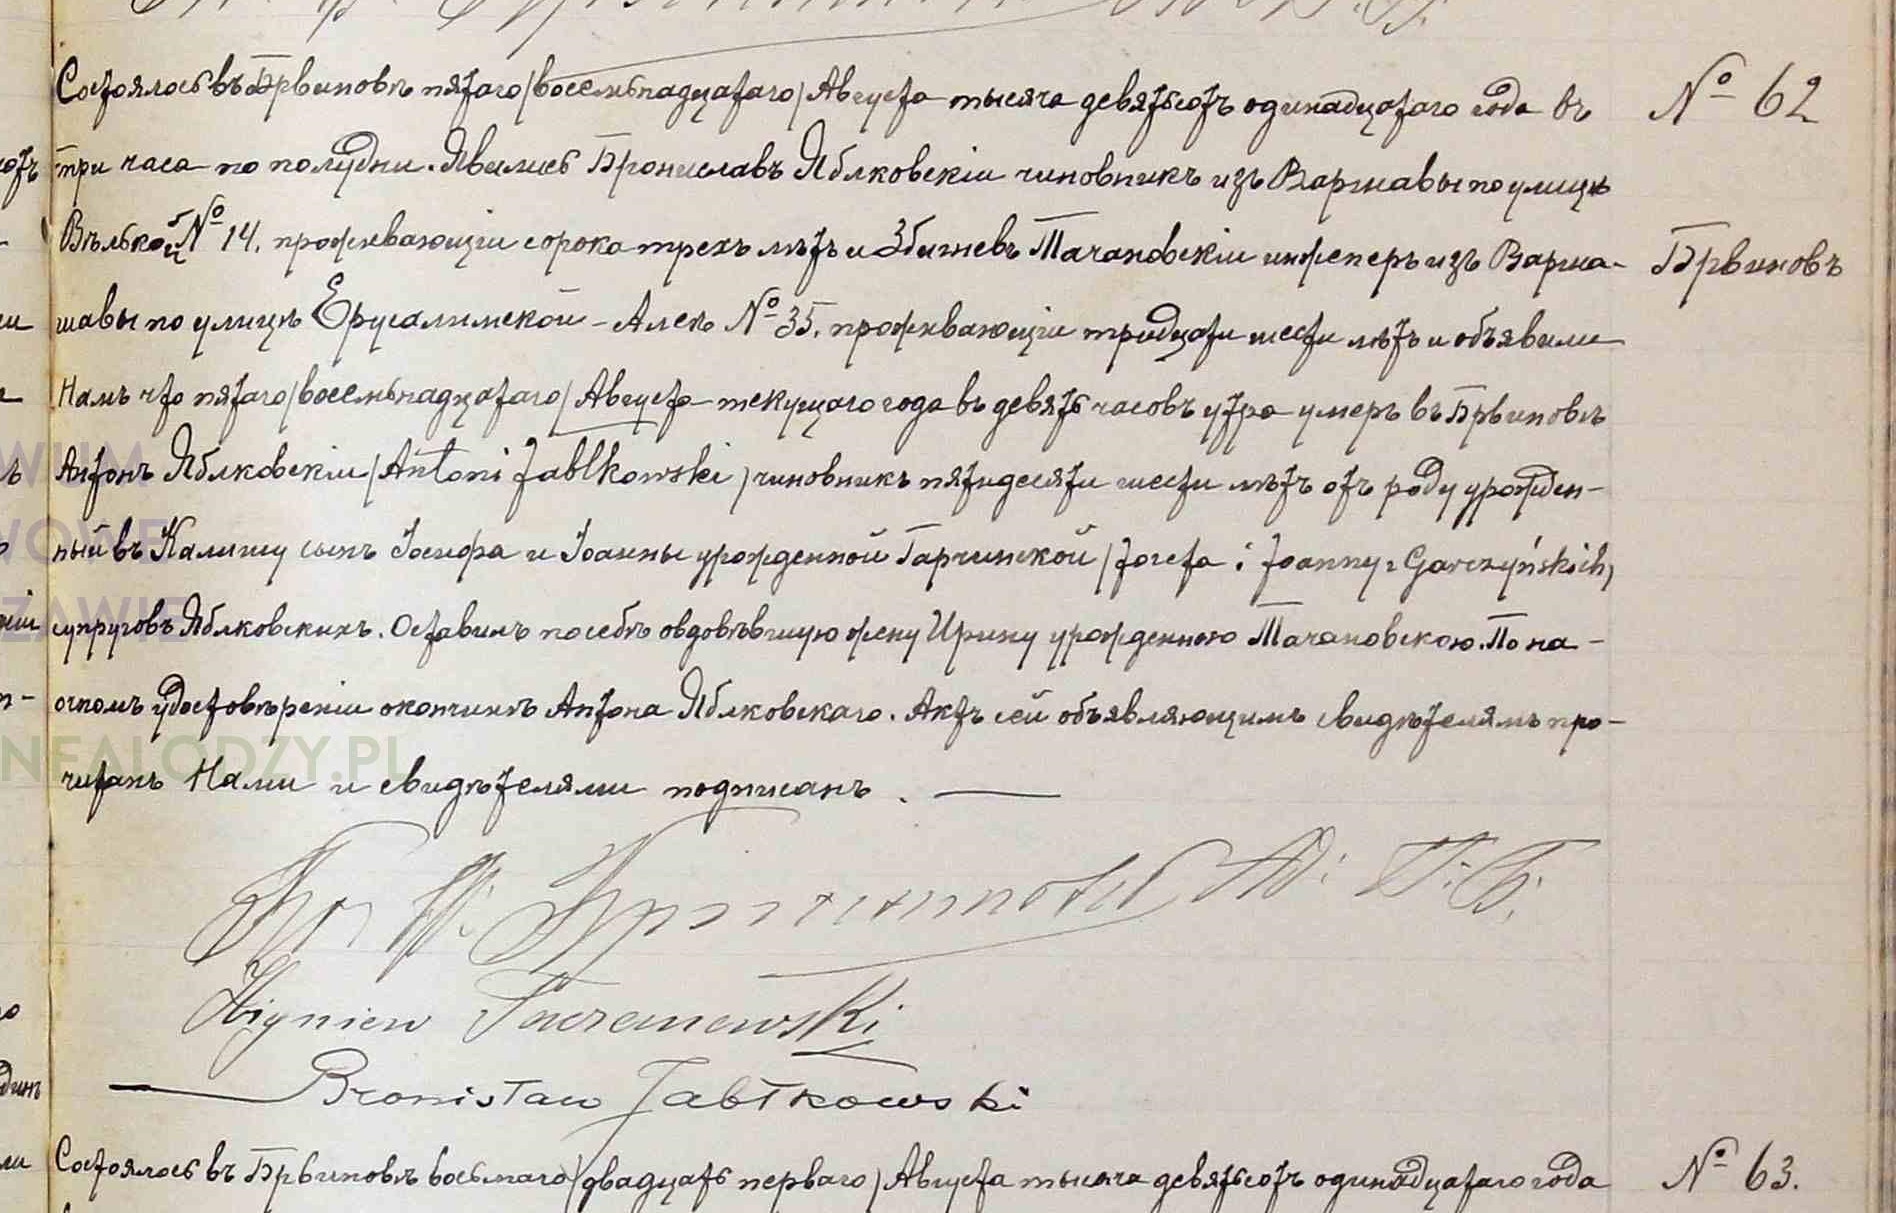 Состоялось въ Брвиновѣ пятаго /восемьнадцатаго/ Августа тысяча девятьсотъ одинадцатаго года въ
№ 62
три часа по полудни. Явились Брониславъ Яблковскій чиновникъ изъ Варшавы по улицѣ
Вѣлькой № 14. проживающій сорока трехъ лѣтъ и Збигневъ Тачановскій инженеръ изъ Варша-
Брвиновъ
шавы по улицѣ Ерусалимской-Алеѣ № 35. проживающій тридцати шести лѣтъ и объявили
Намъ что пятаго /восемьнадцатаго/ Августа текущаго года въ девять часовъ утра умеръ въ Брвиновѣ
Антонъ Яблковскій /Antoni Jabłkowski/ чиновникъ пятидесяти шести лѣтъ отъ роду урожден-
ный въ Калишу сынъ Іосифа и Іоанны урожденной Гарчинской /Jozefa i Joanny z Garczyńskich/
супруговъ Яблковскихъ. Оставилъ по себѣ овдовѣвшую жену Ирину урожденною Тачановскою. По на-
очномъ удостовѣреніи окончинѣ Антона Яблковскаго. Актъ сей объявляющимъ свидѣтелямъ про-
читанъ Нами и свидѣтелями подписанъ.
Zbigniew Taczanowski
Bronisław Jabłkowski
Состоялось въ Брвиновѣ восьмаго /двадцать перваго/ Августа тысяча девятьсотъ одинадцатаго года
№ 63.
WUM
WOWE
ZAWIE
NEALODZY.PL